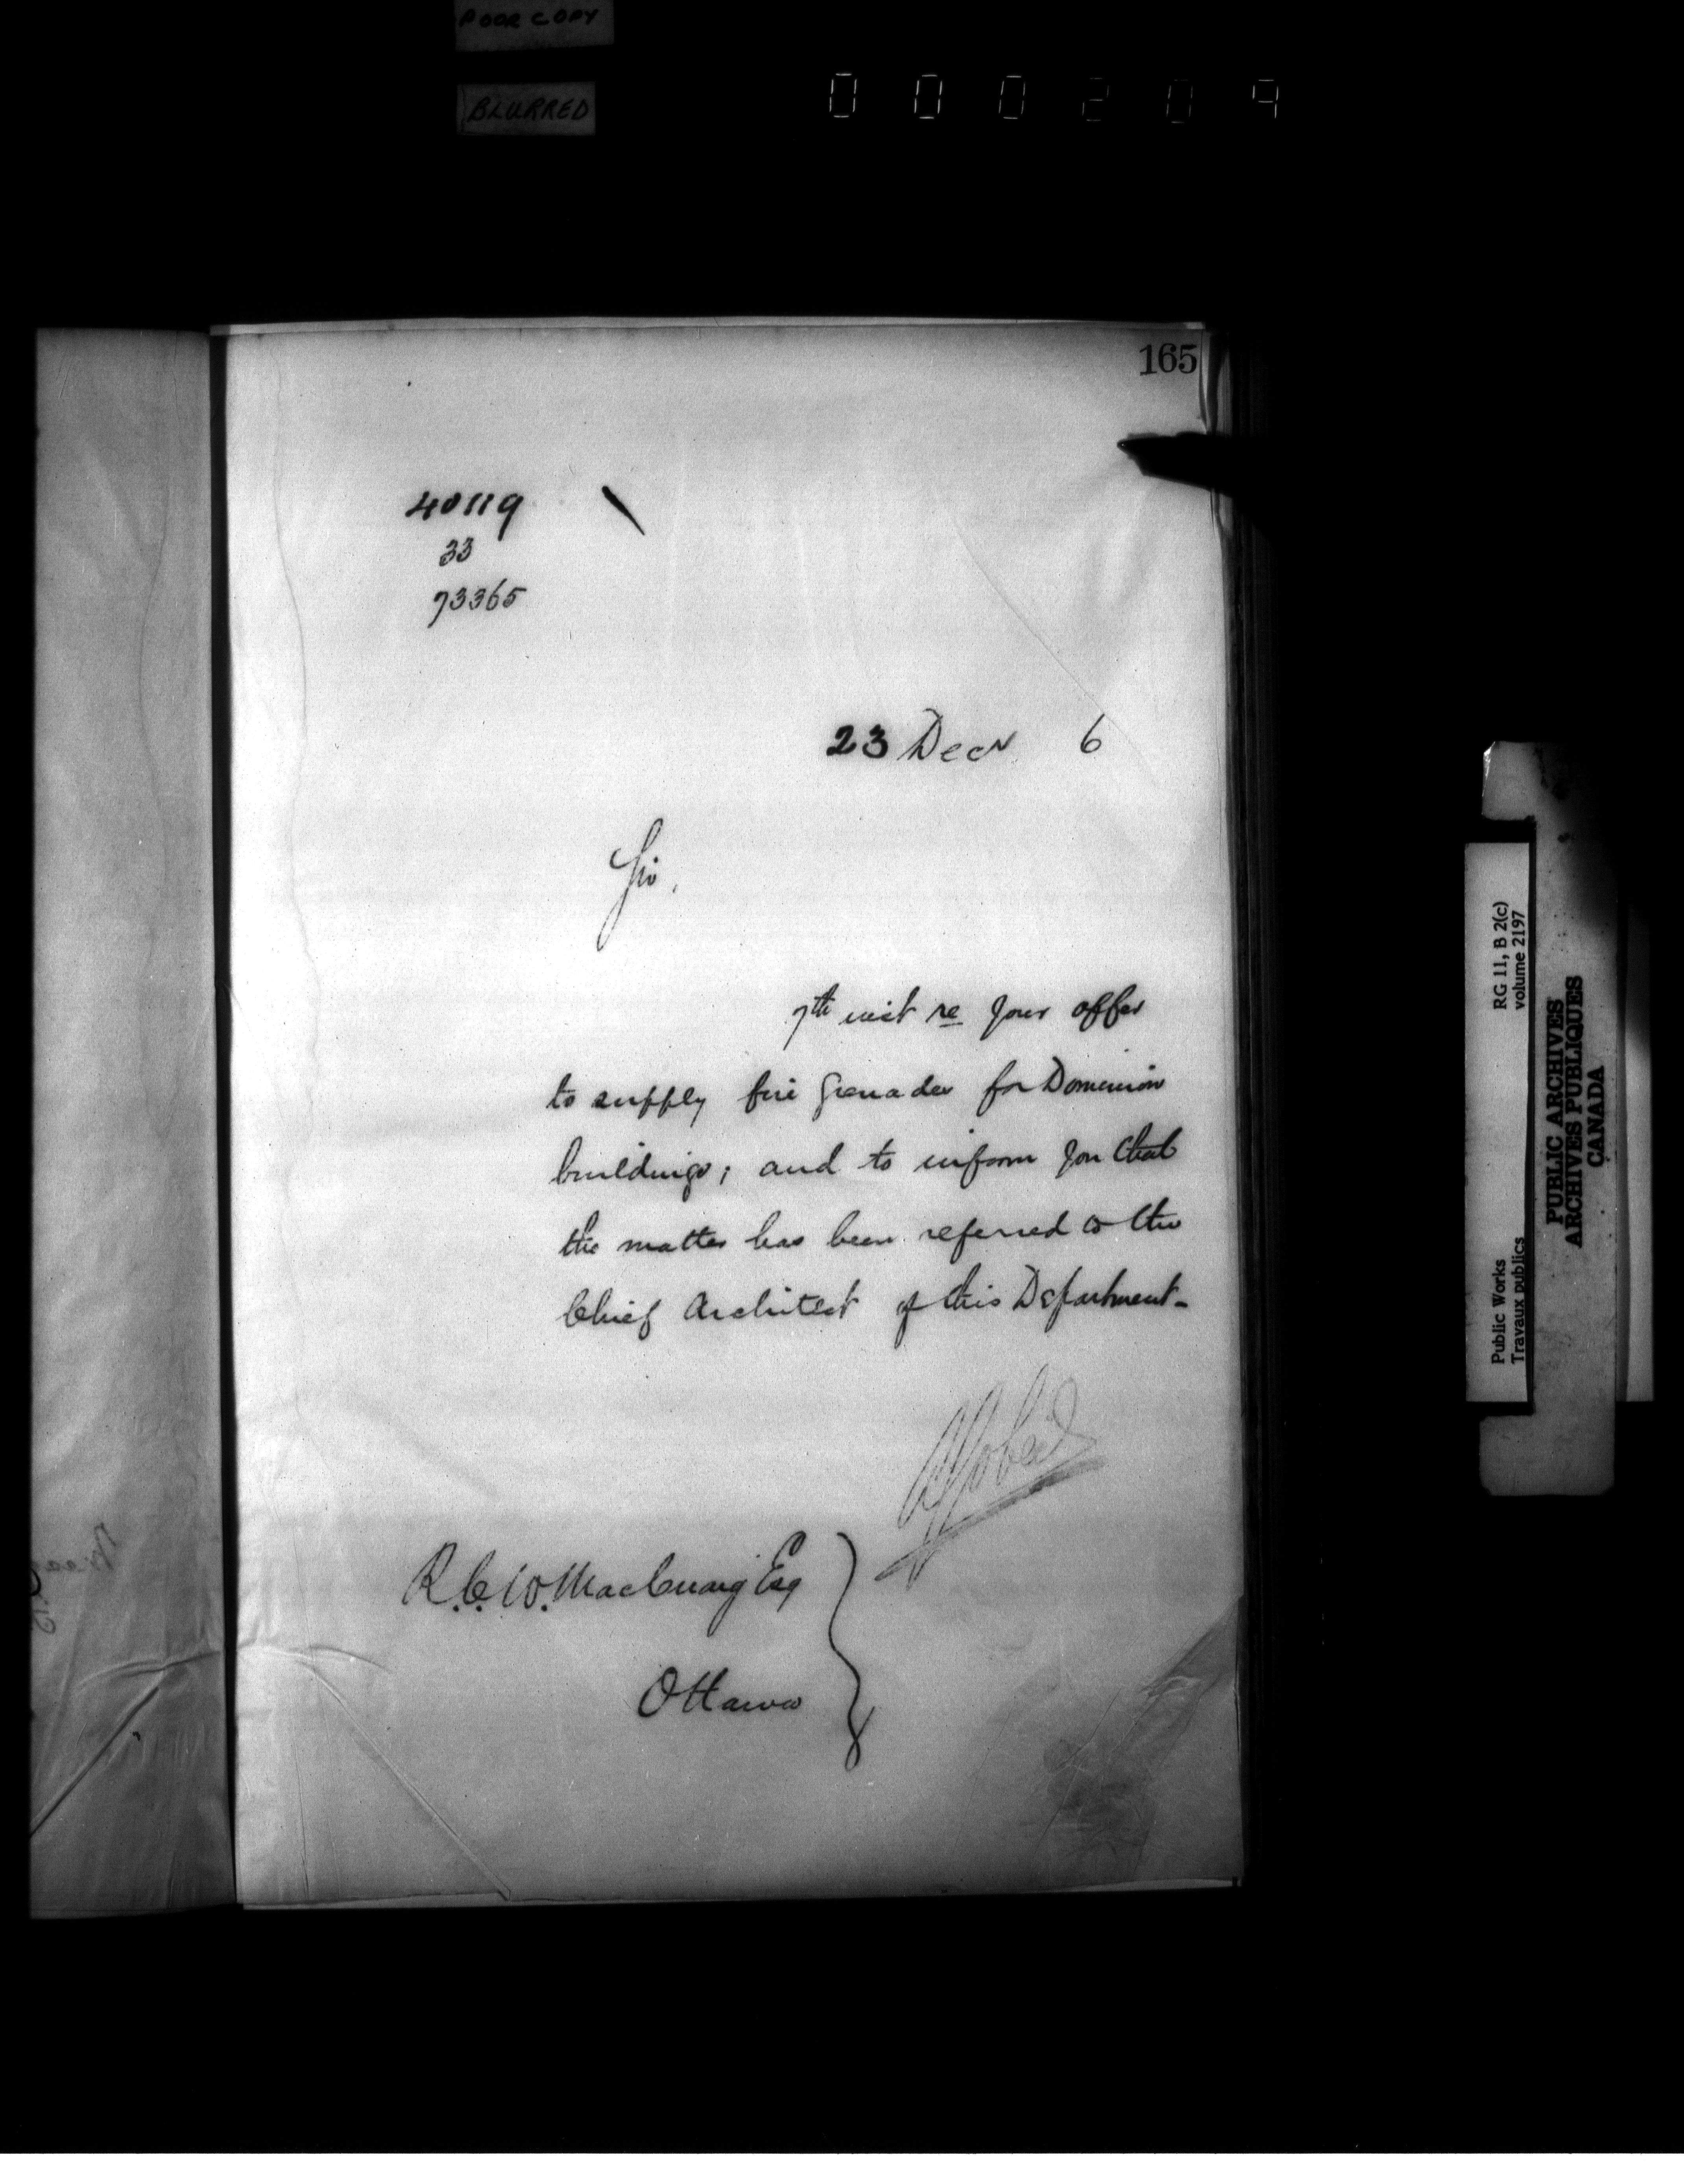 POOR COPY
BLURRED
000209
165
40119
33
73365
23 Decr 6
Sir,
7th inst re your offer
to supply fire grenades for Dominion
buildings; and to inform you that
the matter has been referred to the
Chief Architect of this Department-
A Gobeil
R.C.W. MacCuaig Esq
Ottawa
RG 11, B 2(c)
volume 2197
Public Works
Travaux publics
PUBLIC ARCHIVES
ARCHIVES PUBLIQUES
CANADA